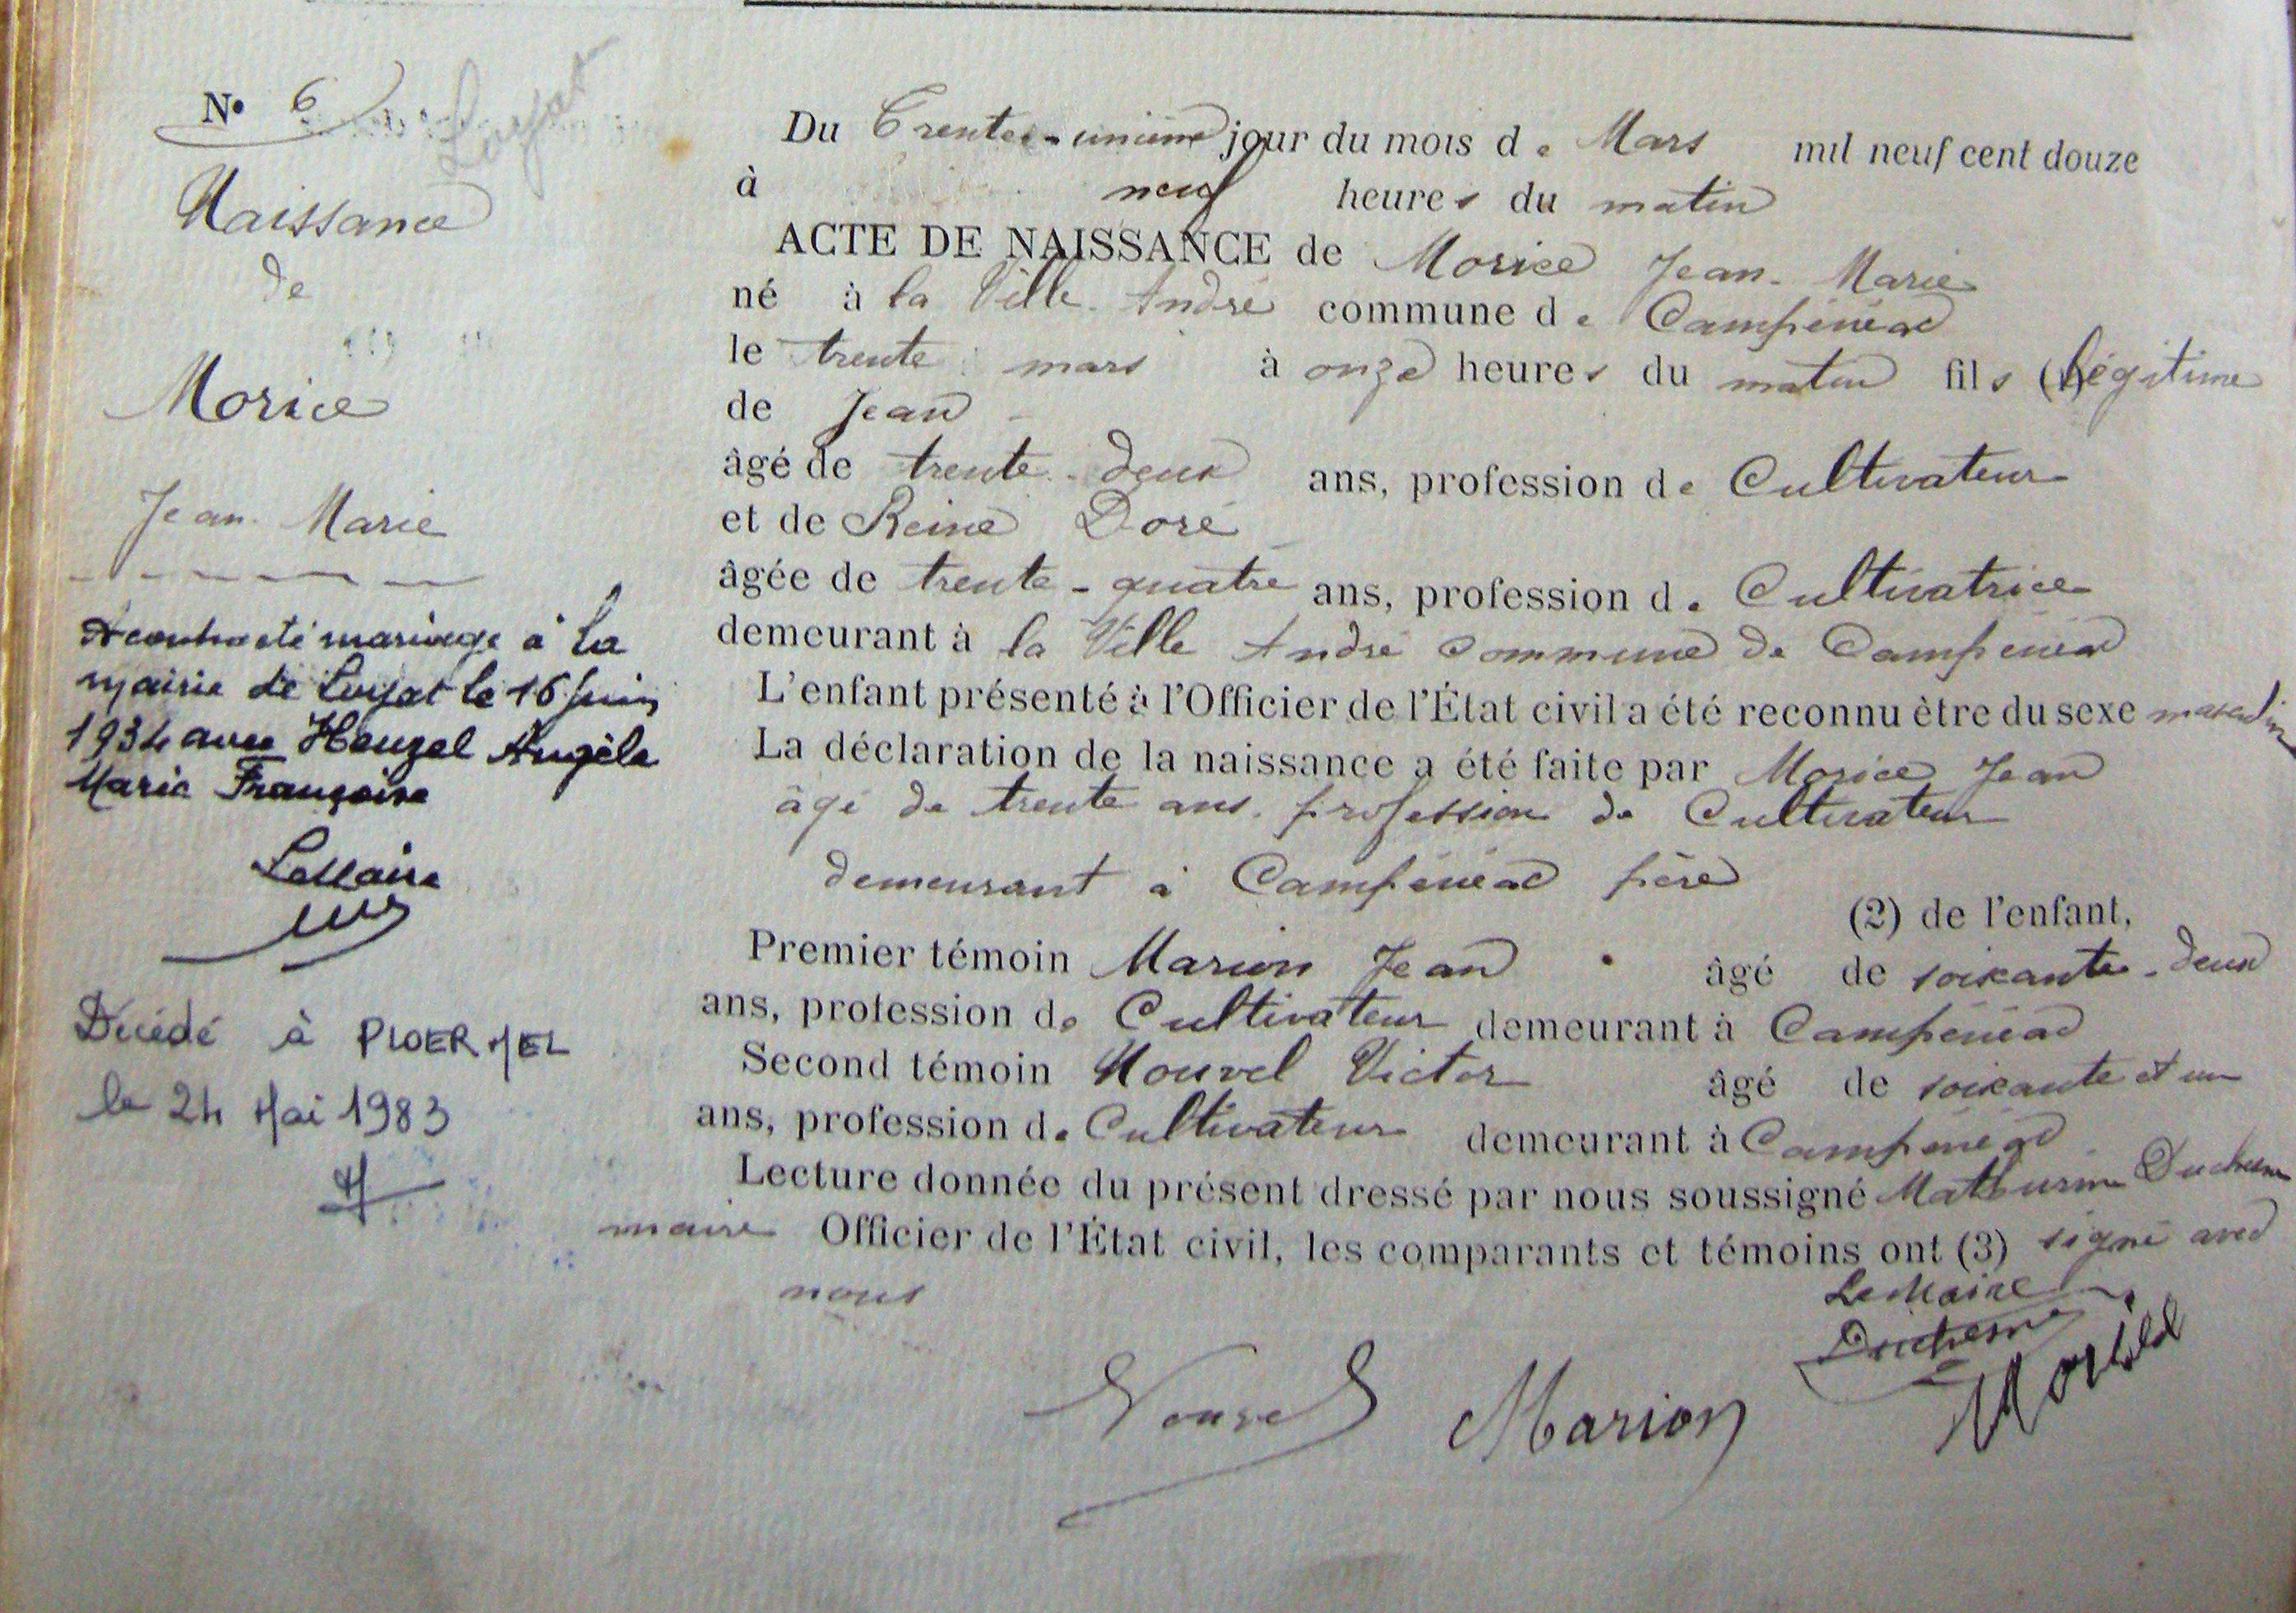 N° 6
Loyat
Naissance
de
Morice
Jean Marie
A contracté mariage à la
mairie de Loyat le 16 Juin
1934 avec Henzel Angèle
Marie Françoise
Le Maire
Décédé à PLOERMEL
le 24 Mai 1983
Du Trente-unième jour du mois de Mars mil neuf cent douze
à neuf heures du matin
ACTE DE NAISSANCE de Morice Jean-Marie
né à la Ville André commune de Campénéac
le trente mars à onze heures du matin fils (1) légitime
de Jean
âgé de trente-deux ans, profession de Cultivateur
et de Reine Doré
âgée de trente-quatre ans, profession de Cultivatrice
demeurant à la Ville André commune de Campénéac
L'enfant présenté à l'Officier de l'État civil a été reconnu être du sexe masculin
La déclaration de la naissance a été faite par Morice Jean
âgé de trente ans, profession de Cultivateur
demeurant à Campénéac père
(2) de l'enfant,
Premier témoin Marion Jean âgé de soixante-deux
ans, profession de Cultivateur demeurant à Campénéac
Second témoin Nouvel Victor âgé de soixante et un
ans, profession de Cultivateur demeurant à Campénéac
Lecture donnée du présent dressé par nous soussigné Mathurin Duchesne
maire Officier de l'État civil, les comparants et témoins ont (3) signé avec
nous
Le Maire
Duchesne
Nouvel Marion Morice